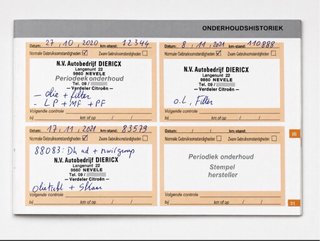 ONDERHOUDSHISTORIEK
Datum: 27, 10, 2020 km-stand: 72344
Normale Gebruiksomstandigheden ☑ Zware Gebruiksomstandigheden ☐
N.V. Autobedrijf DIERICX
Langemunt 22
9860 NEVELE
Periodiek onderhoud
Tel. 09 /
— Verdeler Citroën —
- olie + filter
- LP + MF + PF
Volgende controle
Bij km of op / /
Datum: 8, 11, 2021 km-stand: 110888
Normale Gebruiksomstandigheden ☑ Zware Gebruiksomstandigheden ☐
N.V. Autobedrijf DIERICX
Langemunt 22
9860 NEVELE
Tel. 09 /
— Verdeler Citroën —
o.L, Filter
Volgende controle
Bij km of op / /
Datum: 17, 11, 2021 km-stand: 83579
Normale Gebruiksomstandigheden Zware Gebruiksomstandigheden ☐
88083:
N.V. Autobedrijf DIERICX
Langemunt 22
9860 NEVELE
Tel. 09 /
— Verdeler Citroën —
Volgende controle
Bij km of op / /
Datum: / / km-stand:
Normale Gebruiksomstandigheden ☐ Zware Gebruiksomstandigheden ☐
Periodiek onderhoud
Stempel
hersteller
Volgende controle
Bij km of op / /